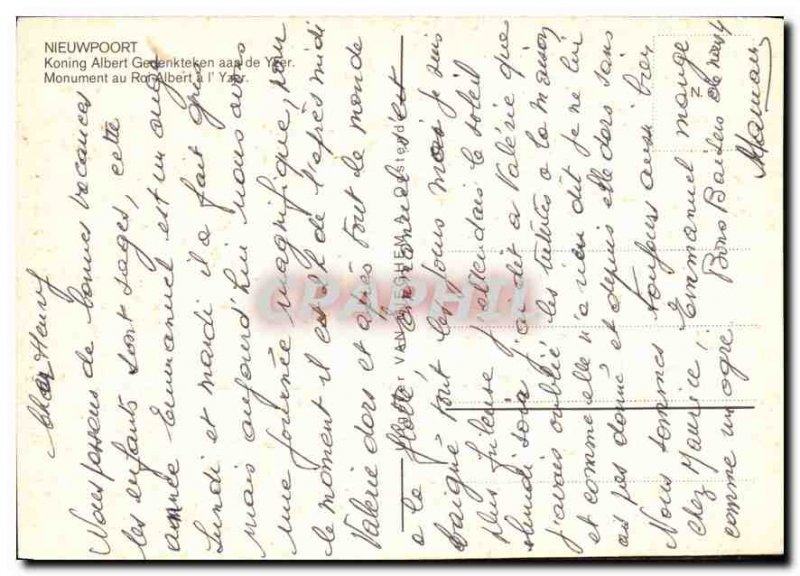 NIEUWPOORT
Koning Albert Gedenkteken aan de Yzer.
Monument au Roi Albert à l'Yzer.
Cher Henry
Nous passons de bonnes vacances
les enfants sont sages, cette
année Emmanuel est un ange
Lundi et mardi il a fait gris
mais aujourd'hui nous avons
une journée magnifique, pour
le moment il est de l'après midi
Valérie dors et après tout le monde
a la flotte, Emmanuel est
baigné tout les jours moi je suis
plus frileuse j'attendais le soleil
Lundi soir j'ai dit a Valérie que
j'avais oublié les tututes a la maison
et comme elle n'a rien dit je ne lui
ai pas donné et depuis elle dors sans
Nous sommes toujours aussi bien
chez Maurice! Emmanuel mange
comme un ogre. Bons Baisers de nous 4
Maman
N
CPAPHIL